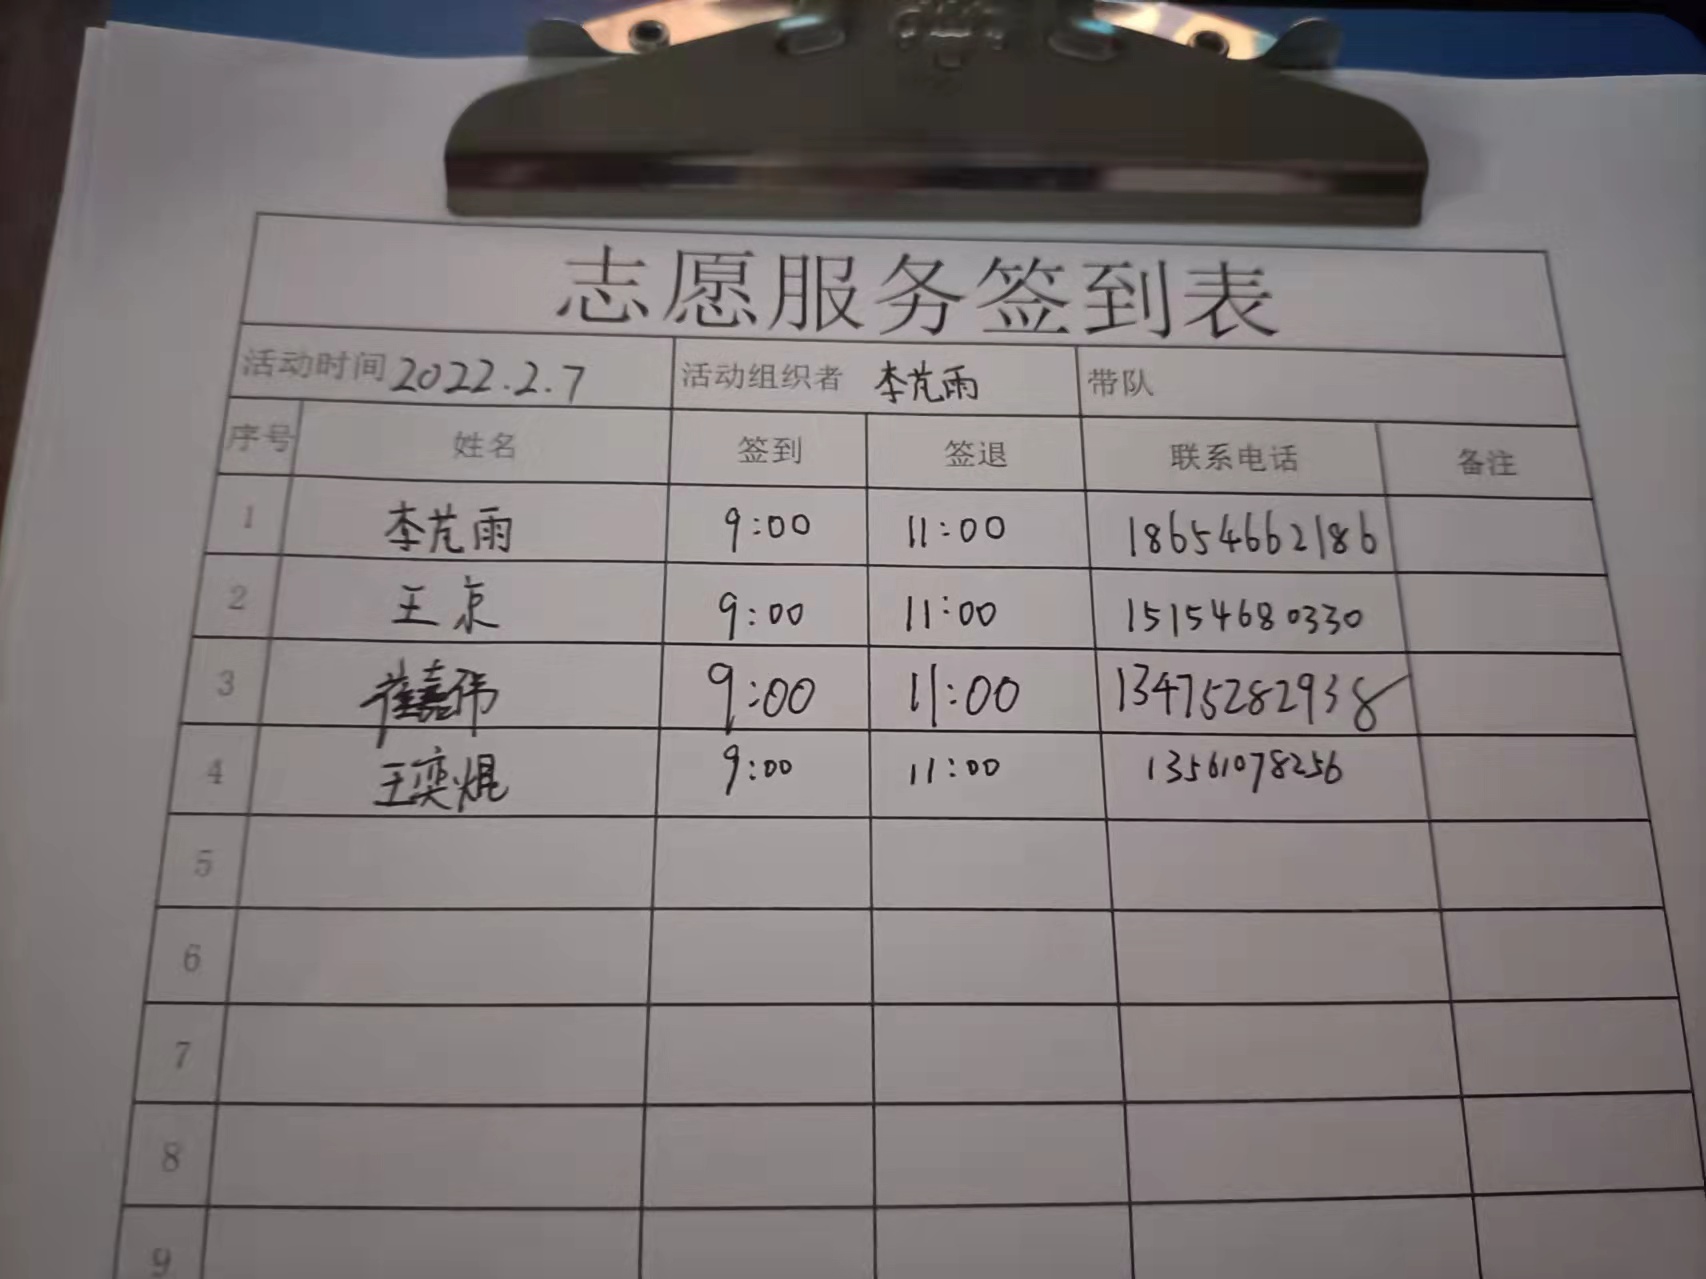 志愿服务签到表
活动时间 2022.2.7 活动组织者 李芃雨 带队
序号 姓名 签到 签退 联系电话 备注
1 李芃雨 9:00 11:00 18654662186
2 王京 9:00 11:00 15154680330
3 崔嘉伟 9:00 11:00 13475282938
4 王奕焜 9:00 11:00 13561078256
5
6
7
8
9